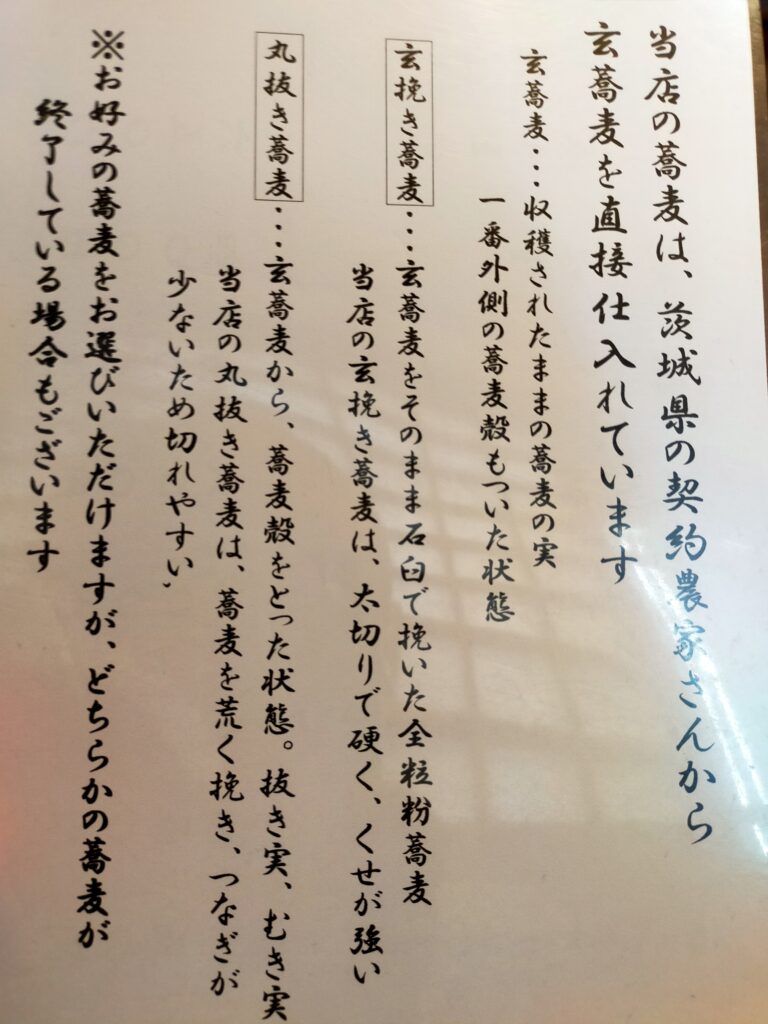 当店の蕎麦は、茨城県の契約農家さんから
玄蕎麦を直接仕入れています
玄蕎麦・・・収穫されたままの蕎麦の実
一番外側の蕎麦殻もついた状態
玄挽き蕎麦・・・玄蕎麦をそのまま石臼で挽いた全粒粉蕎麦
当店の玄挽き蕎麦は、太切りで硬く、くせが強い
丸抜き蕎麦・・・玄蕎麦から、蕎麦殻をとった状態。抜き実、むき実
当店の丸抜き蕎麦は、蕎麦を荒く挽き、つなぎが
少ないため切れやすい、
※お好みの蕎麦をお選びいただけますが、どちらかの蕎麦が
終了している場合もございます